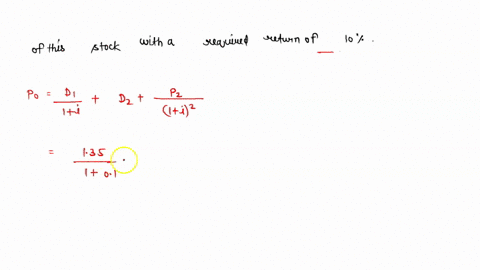 of this stock with a required return of 10%.
P0 = D1/1+i + D2 + P2/(1+i)^2
= 1.35/1+0.1